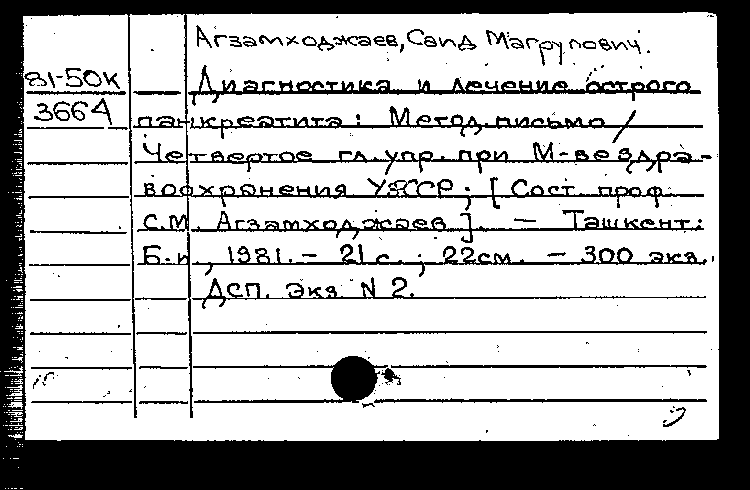 Агзамходжаев, Саид Магрупович.
81-50к
3664
Диагностика и лечение острого
панкреатита: Метод. письмо /
Четвертое гл. упр. при М-ве здра-
воохранения УзССР; [Сост. проф.
С.М. Агзамходжаев]. — Ташкент:
Б.и., 1981. — 21 с.; 22см. — 300 экз.
ДСП. Экз. N 2.